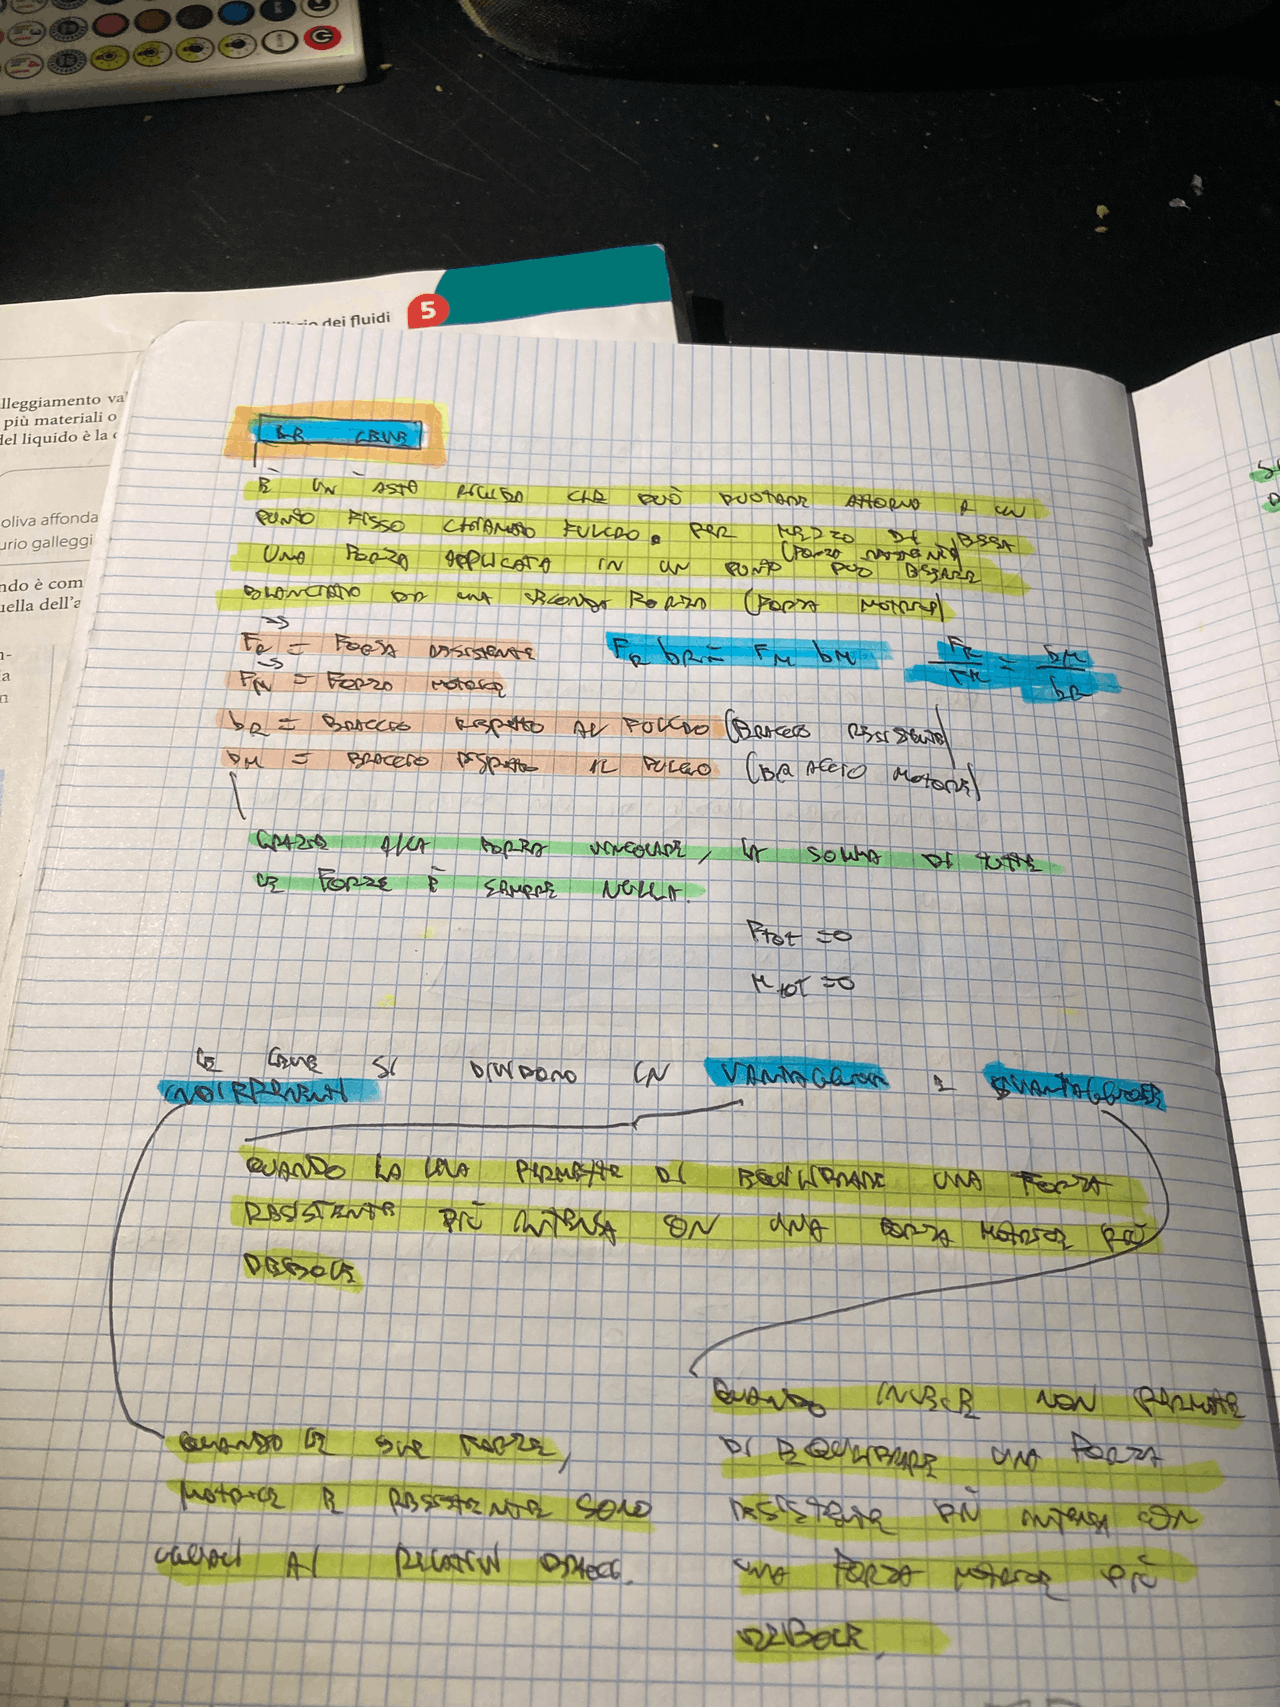 5
dei fluidi
lleggiamento va
più materiali o
del liquido è la
oliva affonda
urio galleggi
ndo è com
uella dell'a
LE LEVE
È UN ASTA RIGIDA CHE PUÒ RUOTARE ATTORNO A UN
PUNTO FISSO CHIAMATO FULCRO. PER MEZZO DI ESSA
UNA FORZA APPLICATA IN UN PUNTO (FORZA RESISTENTE) PUÒ ESSERE
BILANCIATO DA UNA SECONDA FORZA (FORZA MOTRICE)
FR = FORZA RESISTENTE FR bR = FM bM FR/FM = bM/bR
FM = FORZA MOTRICE
bR = BRACCIO RISPETTO AL FULCRO (BRACCIO RESISTENTE)
bM = BRACCIO RISPETTO AL FULCRO (BRACCIO MOTORE)
GRAZIE ALLA FORZA VINCOLARE, LA SOMMA DI TUTTE
LE FORZE È SEMPRE NULLA.
Ftot = 0
Mtot = 0
LE LEVE SI DIVIDONO IN VANTAGGIOSE E SVANTAGGIOSE
INDIFFERENTI
QUANDO LA LEVA PERMETTE DI EQUILIBRARE UNA FORZA
RESISTENTE PIÙ INTENSA CON UNA FORZA MOTRICE PIÙ
DEBOLE
QUANDO INVECE NON PERMETTE
DI EQUILIBRARE UNA FORZA
RESISTENTE PIÙ INTENSA CON
UNA FORZA MOTRICE PIÙ
DEBOLE
QUANDO LE DUE FORZE,
MOTRICE E RESISTENTE SONO
UGUALI AI RELATIVI BRACCI.